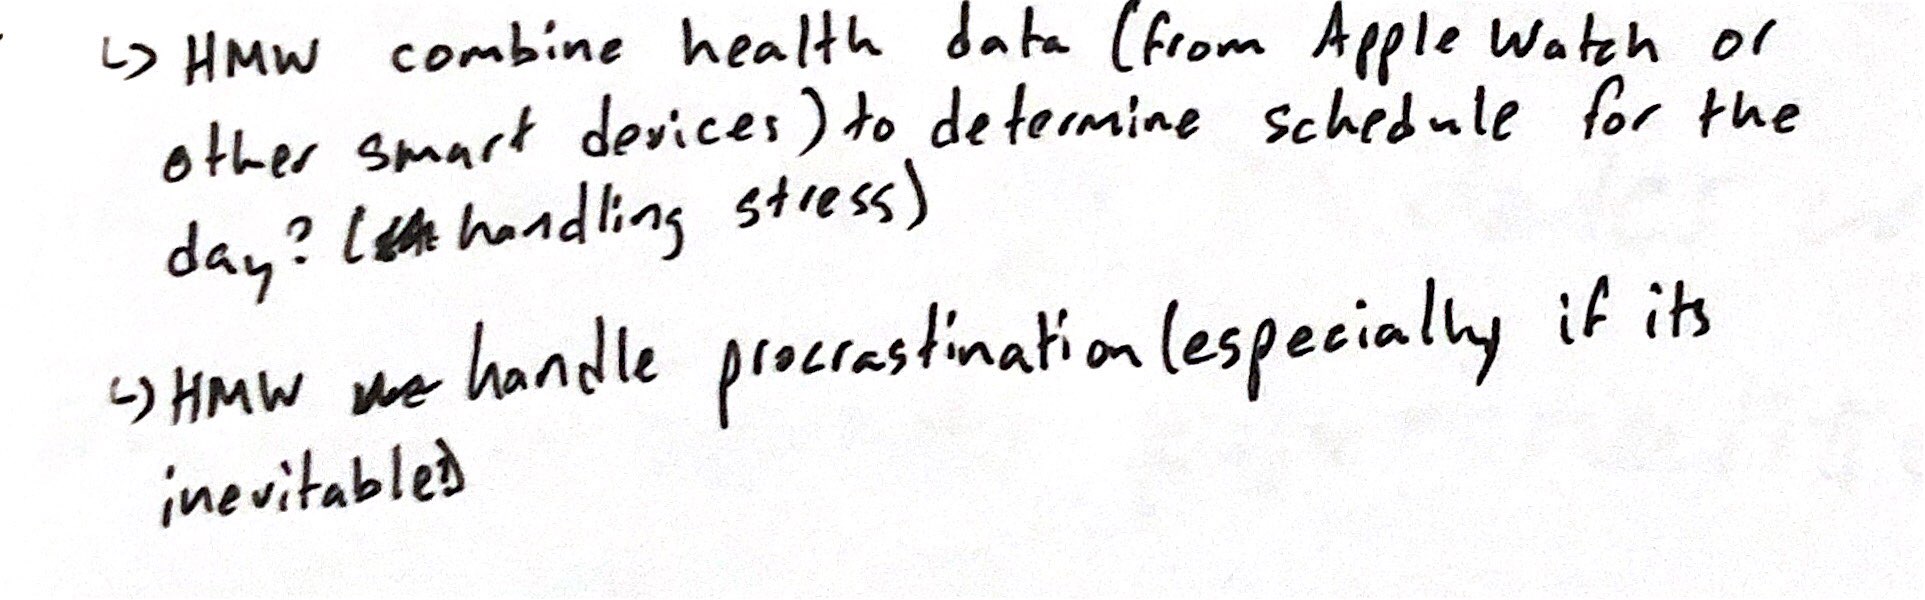 ↳ HMW combine health data (from Apple Watch or
other smart devices) to determine schedule for the
day? ( handling stress)
↳ HMW handle procrastination (especially if its
inevitable)